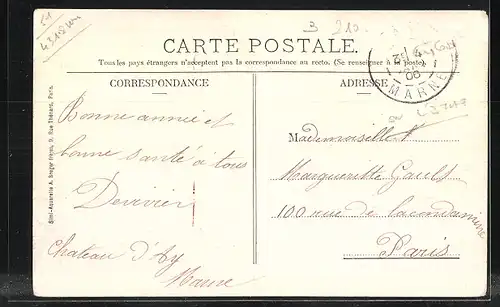 3 210
CARTE POSTALE.
Tous les pays étrangers n'acceptent pas la correspondance au recto. (Se renseigner à la poste).
CORRESPONDANCE
ADRESSE
MARNE
Bonne année et
bonne santé à tous
Devivier
Chateau d'Ay
Marne
Mademoiselle
Margueritte Gault
100 rue de la condamine
Paris
Simi-Aquarelle A. Breger frères, 9, Rue Thénard, Paris.